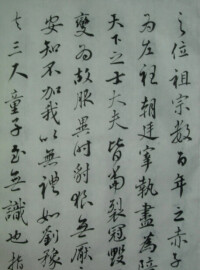 之位祖宗數百年之赤子
為左衽朝廷宰執盡為陪
天下之士大夫皆當裂冠毀
變為胡服異時豺狼無厭
安知不加我以無禮如劉豫
夫三尺童子至無識也指